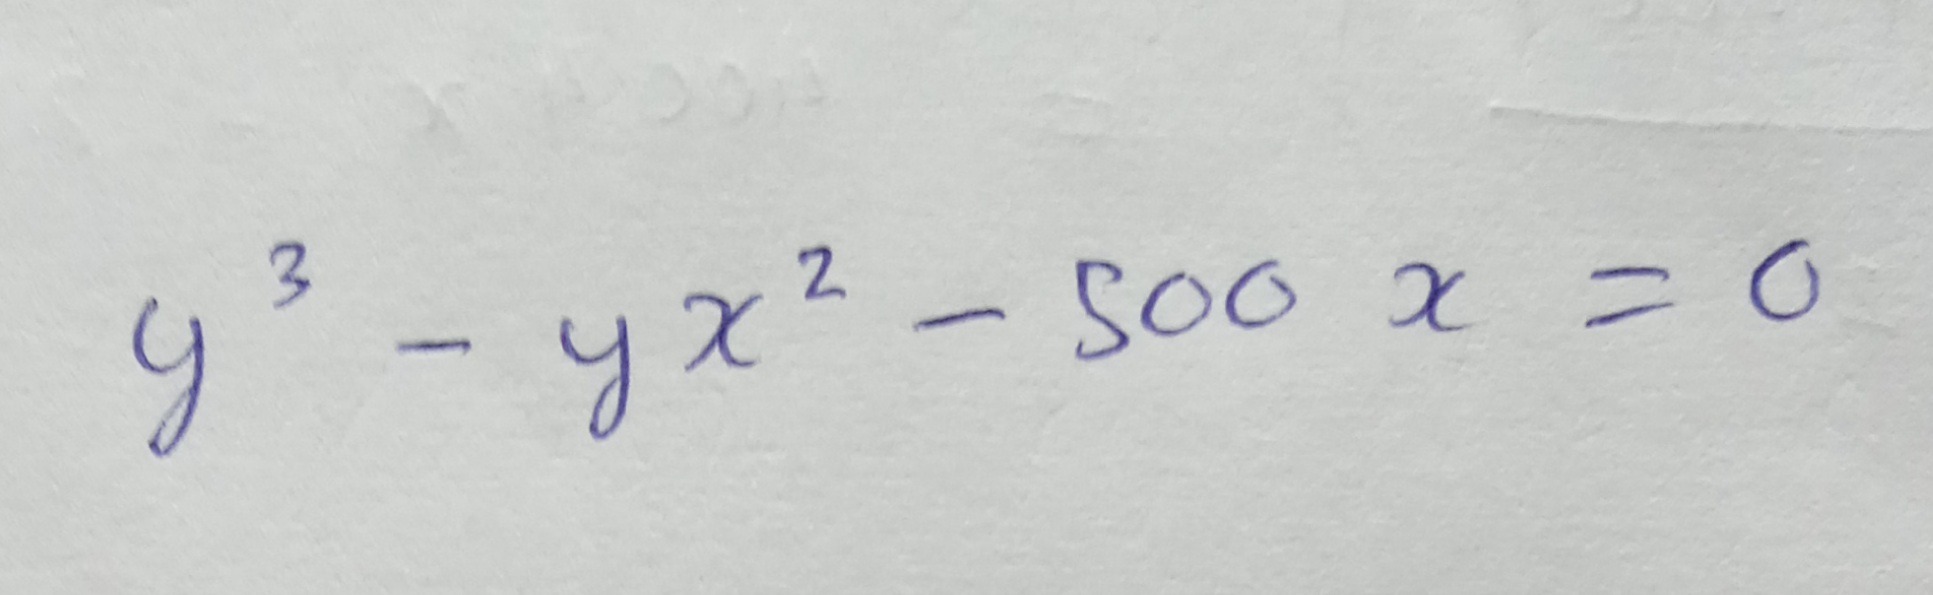 y³ - yx² - 500 x = 0